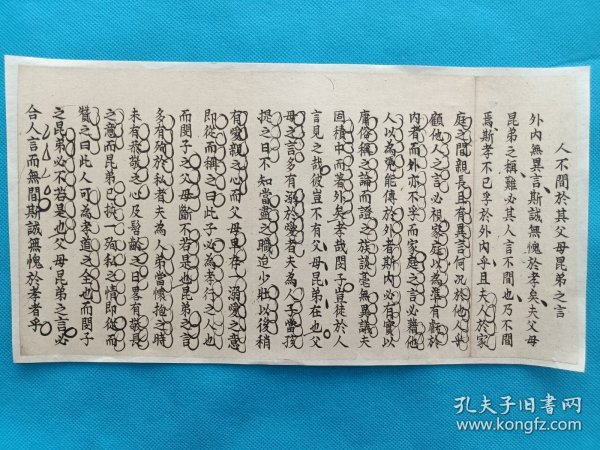 人不間於其父母昆弟之言
外內無異言斯誠無愧於孝矣夫父母
昆弟之稱難必其人言不間也乃不間
焉斯孝不已孚於外內乎且夫人於家
庭之間親長且有異言何況於他人乎
顧他人之言必視家庭以為準有虧於
內者而外亦不孚而家庭之言必藉他
人以為憑能傳於外者斯內必有實以
庸俗稱之論而證之族談毫無異議夫
固積中而著外矣孝哉閔子豈徒於人
言見之哉彼豈不有父母昆弟在也父
母之言多有溺於愛者夫為人子當孩
提之日不知當盡之職迨少壯以後稍
有愛親之心而父母果在溺愛之意
即從而稱之曰此子必為孝行之人也
而閔子之父母斷不若是也昆弟之言
多有殉於私者夫為人弟當懷抱之時
未有恭敬之心及髫齡之日畧有敬長
之意而昆弟已挾一殉私之情即從而
贊之曰此人可為孝道之全也而閔子
之昆弟必不若是也父母昆弟之言必
合人言而無間斯誠無愧於孝者乎
孔夫子旧书网
www.kongfz.com